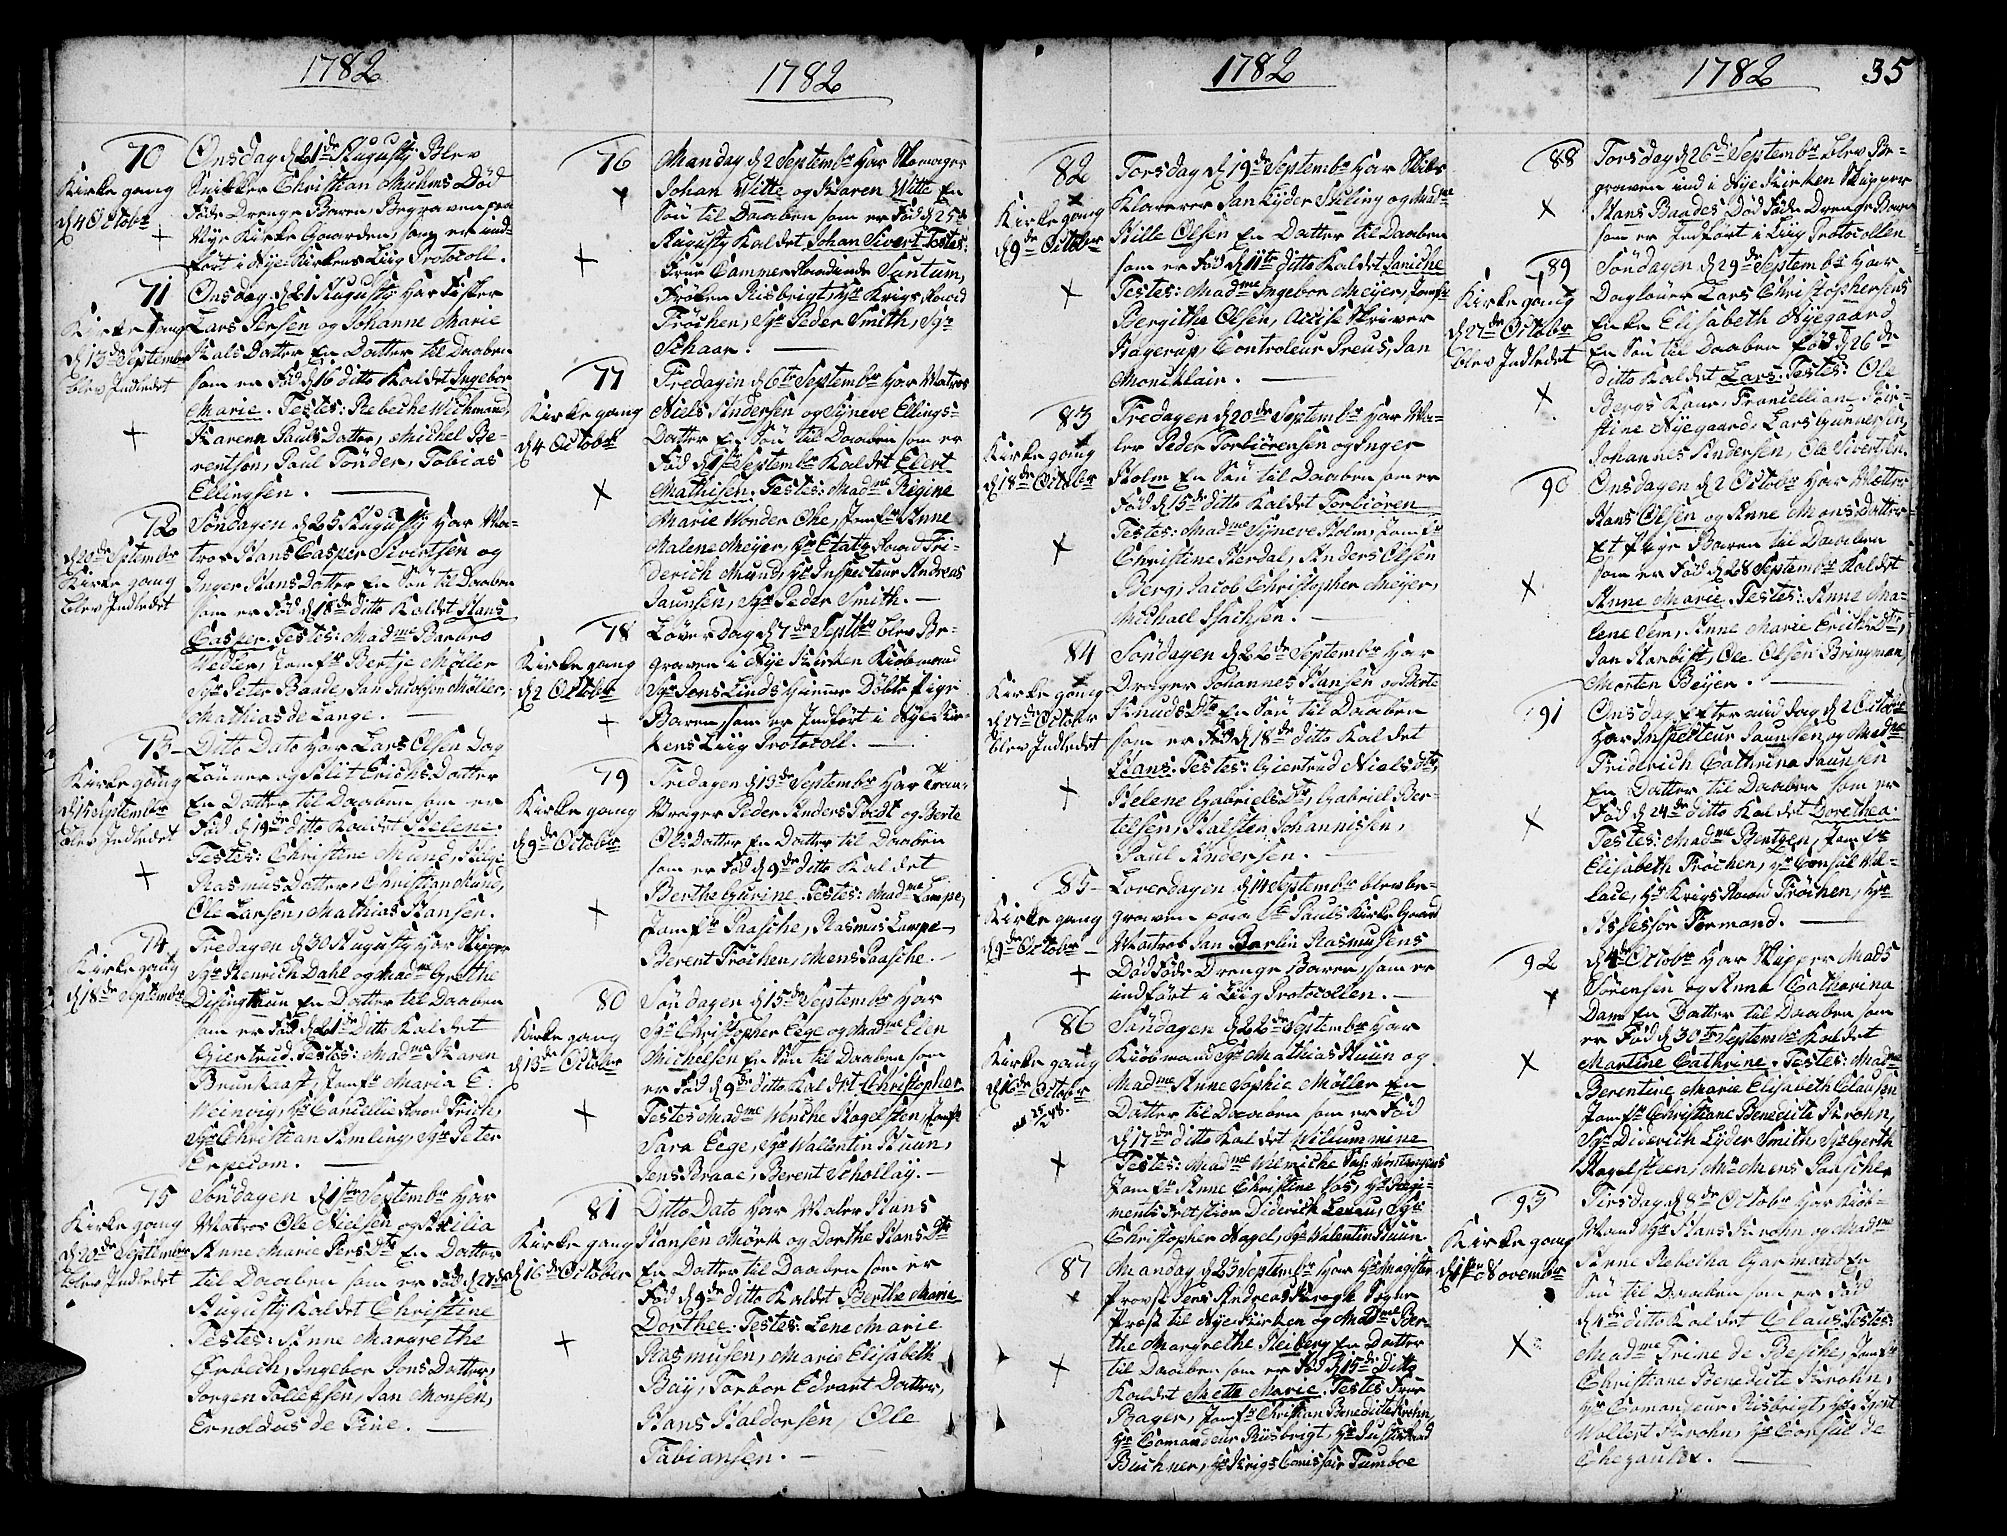 1782
70
Kirke gang
d 4 Octobr
Onsdag d 21de Augustj Blev
Snikker Christian Muhms Død
føde Drenge Baren, Begraven paa
Nye Kirke Gaarden, som er ind-
ført i Nye Kirkens Liig Protocoll.
71
Kirke gang
d 13de Septembr
blev Indledet
Onsdag d 21 Augustj har Fisker
Lars Persen og Johanne Marie
Hals Datter En Datter til Daaben
som er Fød d 16 ditto Kaldet Ingebor
Marie. Testes: Rebeche Wichmand,
Karenn Pauls Datter, Michel Be-
rentsen, Paul Tønder, Tobias
Ellingsen.
72
d 20de Septembr
Kirke gang
blev Indledet
Søndagen d 25 Augustj har Ma-
tros Hans Casper Sivertsen og
Inger Hans Datter En Søn til Daaben
som er Fød d 18de ditto Kaldet Hans
Casper. Testes: Madme Barnes
Wedler, Jomfr Bertje Møller
Sgr Peter Baade, Jan Jacobsen Møller,
Mathias de Lange.
73
Kirke gang
d 15 Septembr
blev Indledet
Ditto Dato har Lars Olsen Dag
Lønner og Sliit Erichs Datter
En Datter til Daaben som er
Fød d 19de ditto Kaldet Helene.
Testes: Christine Mund,
Rasmus Datter, Christian Mund,
Ole Larsen, Mathias Hansen.
74
Kirke gang
d 18de Septembr
Fredagen d 30 Augustj har Skipper
Sgr Henrich Dahl og Madme Grethe
Disingthun En Datter til Daaben
som er Fød d 21de Ditto Kaldet
Giertrud. Testes: Madme Karen
Brunstaaft, Jomfr Maria E.
Meinvig, Hr Cancellie Raad Frich,
Sgr Christian Amling, Sgr Peter
Erpecom.
75
Kirke gang
d 20de Septembr
blev Indledet
Søndagen d 1ste Septembr har
Matros Ole Nielsen og Sicilia
Anne Marie Pers Dtr En Datter
til Daaben som er Fød d 27de
Augustj Kaldet Christine
Testes: Anne Margrethe
Ørbech, Ingebor Jons Datter,
Jørgen Tollefsen, Jan Monsen,
Ernoldus de Fine.
1782
76
Mandag d 2 Septembr har Skomager
Johan Witte og Karen Witte En
Søn til Daaben som er Fød d 25de
Augustj Kaldet Johan Sivert. Testes:
Frue Cammer Raadinde Suntum,
Frøken Risbrigt, Hr Krigs Raad
Frøchen, Sgr Peder Smith, Sgr
Schaar.
77
Kirke gang
d 4 Octobr
Fredagen d 6te Septembr har Matros
Niels Andersen og Synneve Ellings-
Datter En Søn til Daaben som er
Fød d 1ste Septembr Kaldet Elert
Mathisen. Testes: Madme Regine
Marie Wonder Ohe, Jomfr Anne
Malene Meyer, Hr Etatz Raad Fri-
derich Mund, Hr Inspecteur Andreas
Jaunsen, Sgr Peder Smith.
78
Kirke gang
d 2 Octobr
Løver Dag d 7de Septbr blev Be-
graven i Nye Kirken Kiøbmand
Sgr Jens Linds Hiemme Døbte Pige
Baren, som er Indført i Nye Kir-
kens Liig Protocoll.
79
Kirke gang
d 9de Octobr
Fredagen d 13de Septembr har Tran-
Vrager Peder Anders Todt og Berte
Ols Datter En Datter til Daaben
som er Fød d 9de ditto Kaldet
Berthe Gurine. Testes: Madme Lampe,
Jomfr Paasche, Rasmus Lampe,
Berent Frøchen, Mens Paasche.
80
Kirke gang
d 13de Octobr
Søndagen d 15de Septembr har
Sgr Christopher Eege og Madme Elen
Michelsen En Søn til Daaben som
er Fød d 9de ditto Kaldet Christopher
Testes Madme Wenche Hagelsten, Jomfr
Sara Eege, Sgr Wallentin Huun,
Jens Braae, Berent Schollaij.
81
Kirke gang
d 16de October
Ditto Dato har Maler Hans
Hansen Mørk og Dorthe Hans Dtr
En Datter til Daaben som er
Fød d 9de ditto Kaldet Berthe Marie
Dorthee. Testes: Lene Marie
Rasmusen, Marie Elisabeth
Bay, Torbor Edvart Datter,
Hans Haldorsen, Ole
Tabiansen.
1782
82
Kirke gang
d 9de October
Torsdag d 19de Septembr har Skibs
Klarerer Jan Lyder Stuling og Madme
Bille Olsen En Datter til Daaben
som er Fød d 11te ditto Kaldet Janiche
Testes: Madme Ingebor Meyer, Jomfr
Bergithe Olsen, Accise Skriver
Hagerup, Controleur Preus, Jan
Moncklain.
83
Kirke gang
d 18de Octobr
Fredagen d 20de Septembr har Ma-
ler Peder Torbiørensen og Inger
Holm En Søn til Daaben som er
Fød d 15de ditto Kaldet Torbiøren
Testes: Madme Synneve Holm, Jomfr
Christine Herdal, Anders Olsen
Berg, Jacob Christopher Meyer,
Michael Isachsen.
84
Kirke gang
d 27de Octobr
blev Indledet
Søndagen d 22de Septembr har
Drager Johannes Hansen og Berte
Knuds Dtr En Søn til Daaben
som er Fød d 18de ditto Kaldet
Hans. Testes: Giertrud Niels Dtr,
Helene Gabriels Dtr, Gabriel Ber-
telsen, Halsten Johannissen,
Paul Andersen.
85
Kirke gang
d 9de October
Løverdagen d 14 Septembr blev be-
graven paa St Pauls Kirke Gaard
Matros Jan Barlin Rasmusens
Død Føde Drenge Baren som er
indført i Liig Protocollen.
86
Kirke gang
d 16de Octobr
Søndagen d 22de Septembr har
Kiøbmand Sgr Mathias Huun og
Madme Anne Sophie Møller En
Datter til Daaben som er Fød
d 17de ditto Kaldet Willummine
Testes: Madme Wilmiche
Jomfr Anne Christine Fos, Hr Regi-
ments Diderich Lexau, Sgr
Christopher Nagel, Sgr Valentin Huun
87
Mandag d 23 Septembr har Hr Magister
Provst Jens Andreas Krogh Sogne
Præst til Nye Kirken og Madme Ber-
the Margrethe Heiberg En Datter
til Daaben som er Fød d 15de Ditto
Kaldet Mette Marie. Testes Frue
Bager, Jomfr Christian Benedicte Krohn,
Hr Comandeur Risbrigt, Hr Justits Raad
Buchner, Hr Krigs Comissair Tumboe
1782
35
88
Torsdag d 26de Septembr blev Be-
graven ind i Nye Kirken Skipper
Hans Baades Død føde Drenge Baren
som er Indført i Liig Protocollen
89
Kirke gang
d 27de Octobr
blev Indledet
Søndagen d 29de Septembr har
Dagløner Lars Christophersens
Enke Elisabeth Nyegaard
En Søn til Daaben Fød d 26de
ditto Kaldet Lars. Testes: Ole
Bergs Kone, Kir-
stine Nyegaard, Lars Gunnersen,
Johannes Andersen, Ole Sivertsen.
90
Onsdagen d 2 Octobr har Vægter
Hans Olsen og Anne Mons Datter
Et Pige Baren til Daaben
som er Fød d 28 Septembr Kaldet
Anne Marie. Testes: Anne Ma-
lene Sem, Anne Marie Erichs Dtr,
Jan Harbist, Ole Olsen Bringman,
Morten Beijer.
91
Onsdag Efter mid dag d 2 Octobr
har Inspecteur Jaunsen og Madme
Friderich Cathrina Jaunsen
En Datter til Daaben som er
Fød d 24de ditto Kaldet Dorethea.
Testes: Madme Bentzen, Jomfr
Elisabeth Frøchen, Hr Consul Wal-
lace, Hr Krigs Raad Frøchen, Hr
Assessor Formand.
92
d 4de Octobr har Skipper Mads
Sørensen og Anna Catharina
Dam En Datter til Daaben som
er Fød d 30te Septembr Kaldet
Martine Cathrine. Testes: Madme
Berentine Marie Elisabeth Clausen
Jomfr Christiane Benedicte Krohn,
Sgr Diderich Lyder Smith, Sgr Gerth
Hagelsteen, Mr Mens Paasche
93
Kirke gang
d 1ste November
Tirsdag d 8de Octobr har Kiøb-
Mand Sgr Hans Krohn og Madme
Anne Rebecha Garmand En
Søn til Daaben som er Fød
d 4de ditto Kaldet Claus. Testes:
Madme Trine de Besche, Jomfr
Christiane Benedicte Krohn,
Hr Comandeur Risbrigt, Hr Agent
Wollert Krohn, Hr Consul de
Chezaulx.